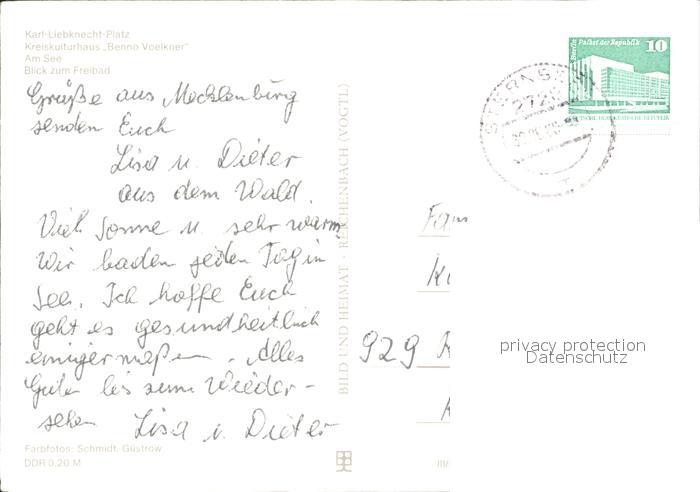 Karl-Liebknecht-Platz
Kreiskulturhaus „Benno Voelkner"
Am See
Blick zum Freibad
Grüße aus Mecklenburg
senden Euch
Lisa u. Dieter
aus dem Wald.
Viel Sonne u. sehr warm.
Wir baden jeden Tag im
See. Ich hoffe Euch
geht es gesundheitlich
einigermaßen. Alles
Gute bis zum Wieder-
sehen Lisa u. Dieter
Farbfotos: Schmidt, Güstrow
DDR 0,20 M
BILD UND HEIMAT · REICHENBACH (VOGTL)
Berlin Palast der Republik 10
DEUTSCHE DEMOKRATISCHE REPUBLIK
Fam
929
privacy protection
Datenschutz